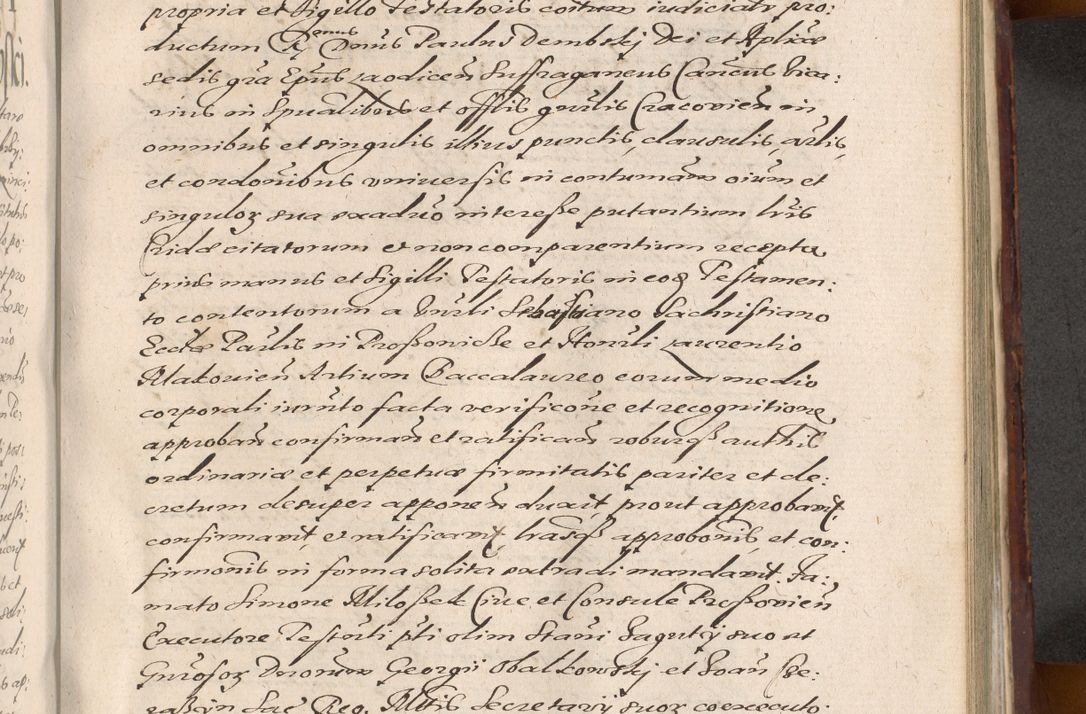 propria et Sigillo Testatoris coitum iudicialr pro:
ductum R̃enus Dñus Paulus Dembskj Dei et Aplicæ
sedis gr̃a Ep̃us Laodiceñ Suffraganeus Cancñus Vica:
rius in Spualibus et offlis gñlis Cracovieñ in
omnibus et singulis illius punctis, clausulis, artlis,
et condonibus vniuersis in contumam oium et
singuloꝝ sua exaduo interesse putantium lr̃is
Eiidē citatorum et non comparentium recepta
prius manus et Sigilli Testatoris in eoꝝ Testamen:
to contentorum a Vnrli Sebastiano Sachristiano
Eccłæ Parlis in Proßoviche et Honrli Laurentio
Makouień Artium Baccalaureo eorum medio
corporali iurnto facta verificone et recognitione
approbañ confirmañ et ratificañ roburqꝫ authis
ordinariæ et perpetuæ firmitatis pariter et de:
cretum desuper apponeñ duxit, prout approbavit,
confirmavit, et ratificavit, lrasqꝫ approbonis, et con:
firmonis in forma solita extradi mandavit. Fa:
mato Simone Miloßek Ciue et Consule Proßovień
Executore Testnti pti olim Stani Gagutij suo et
Gnrosoꝝ Dnorum Georgij Obalkowskj et Joañ SSe:
raßyn Sac Reg. Mttis Secretarij suoꝝ coexecuto: